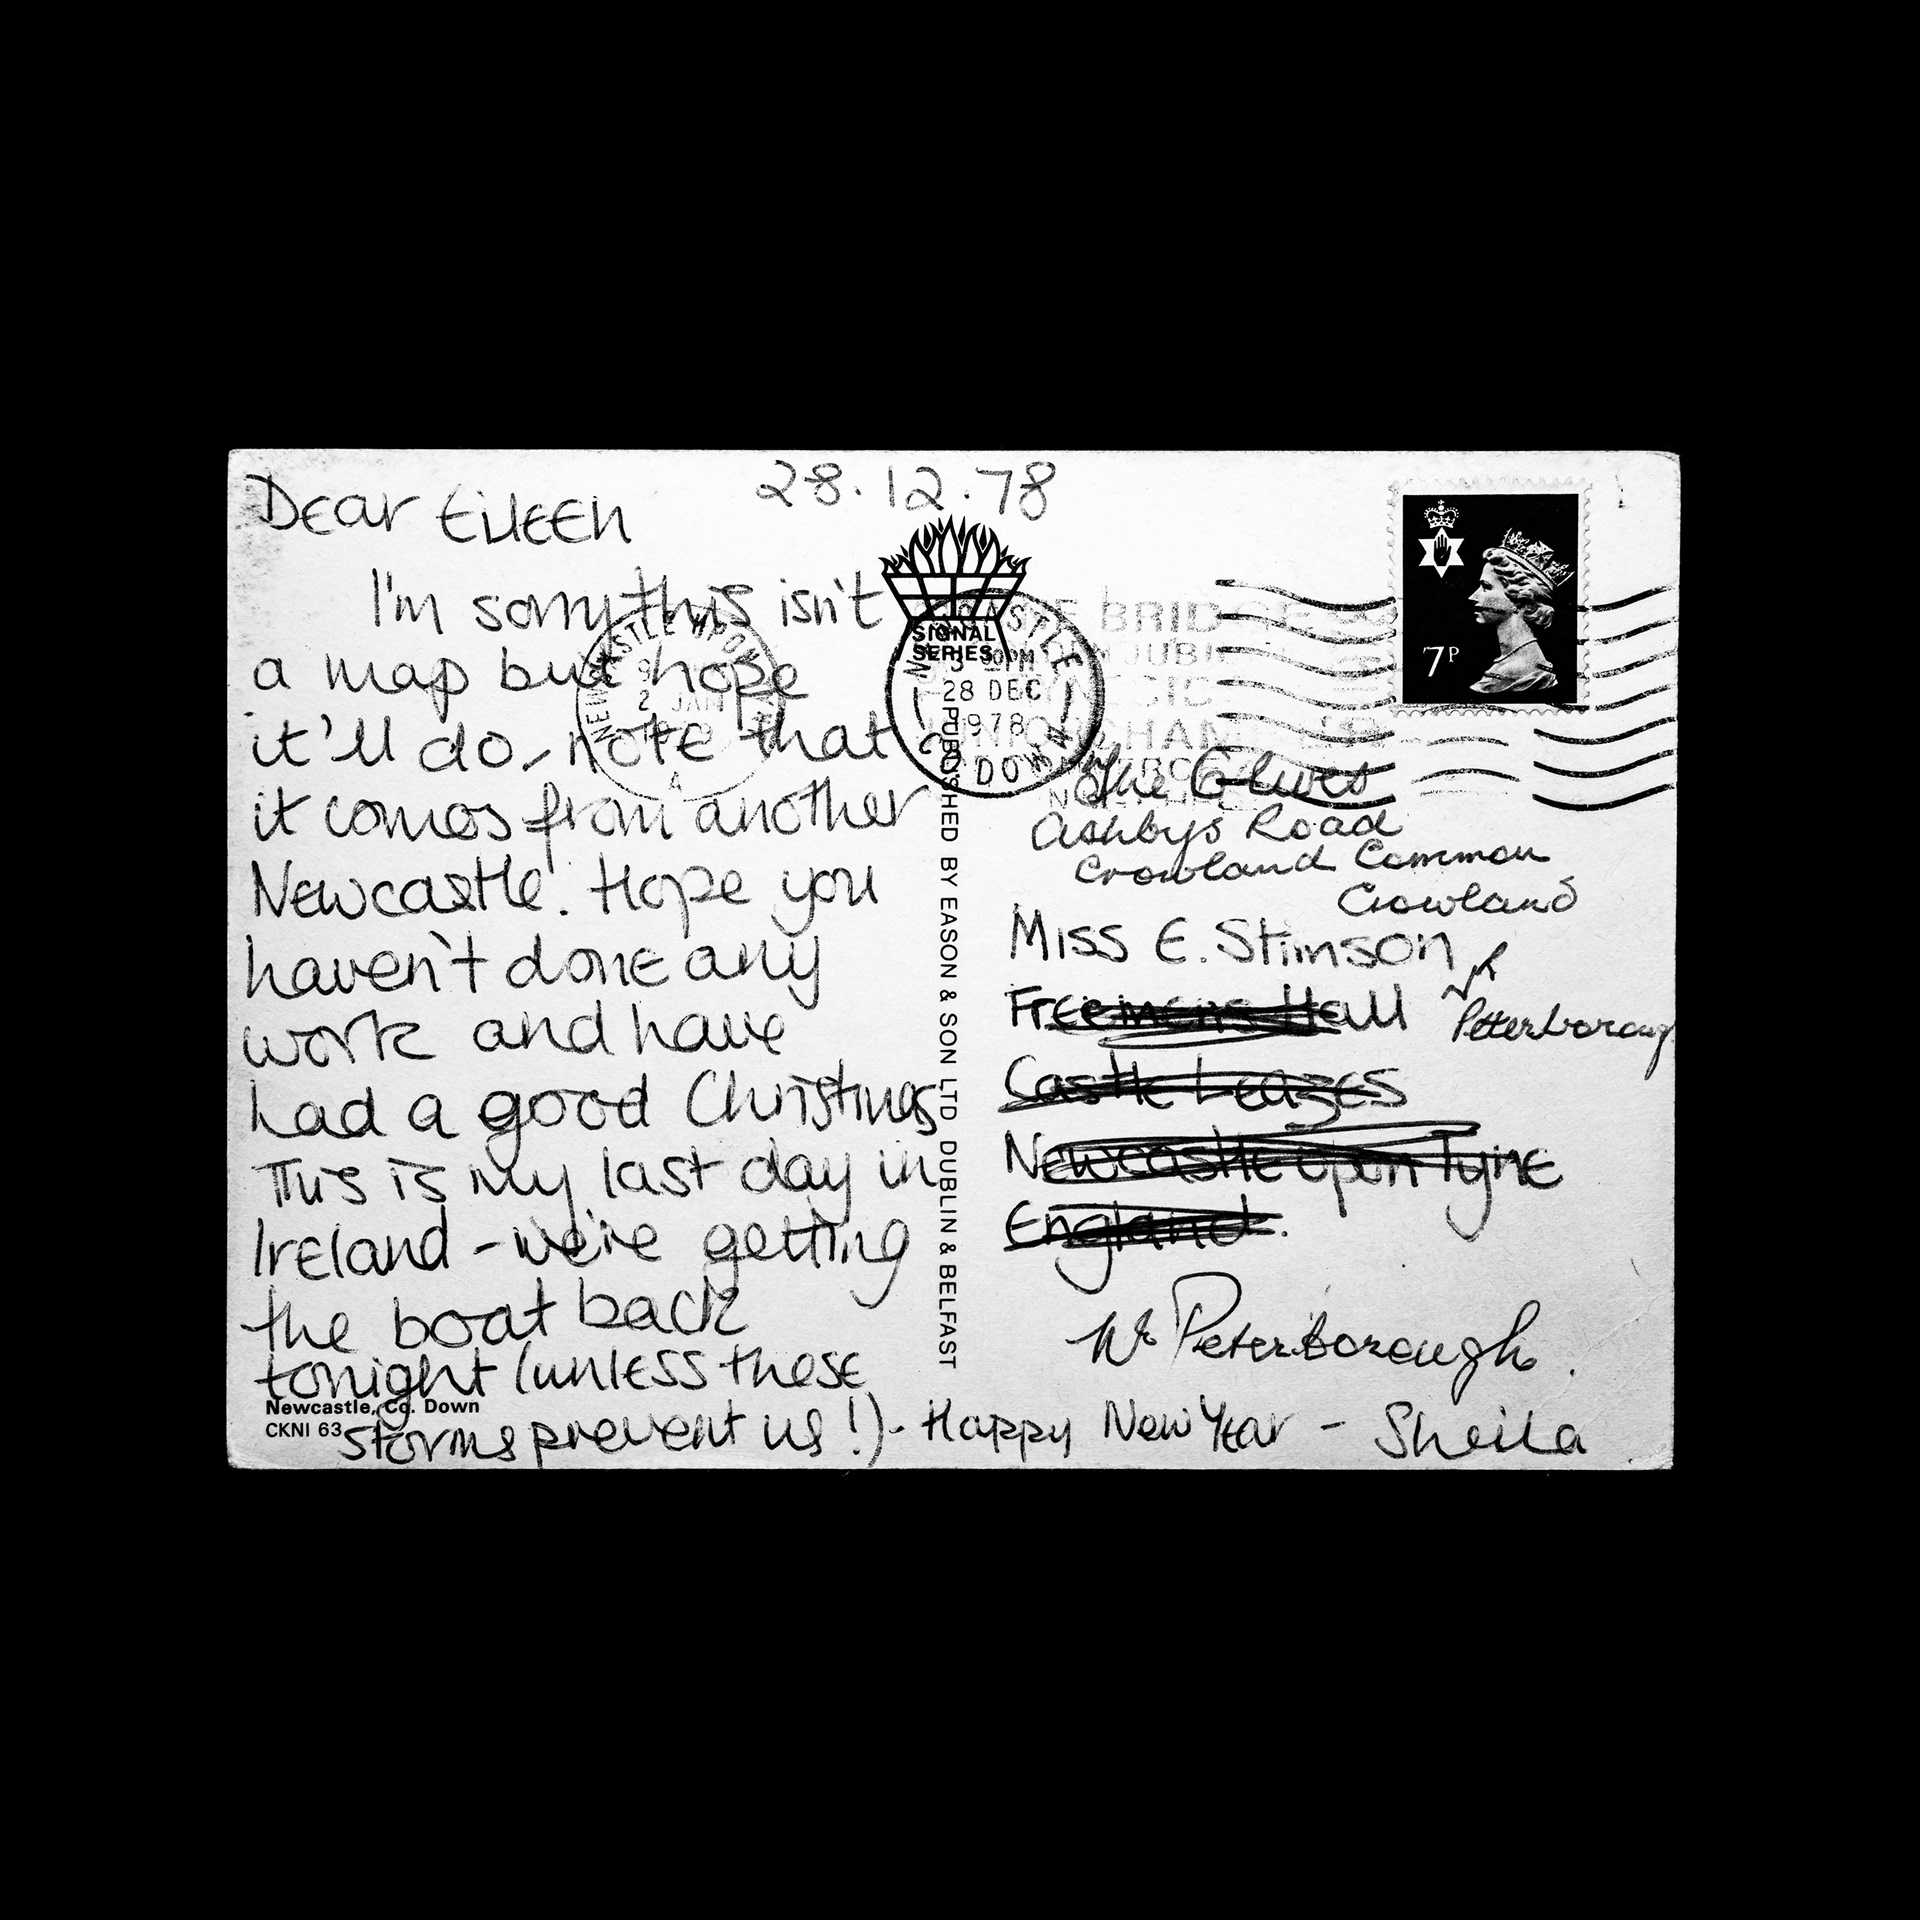 28.12.78
Dear Eileen
I'm sorry this isn't
a map but hope
it'll do, note that
it comes from another
Newcastle! Hope you
haven't done any
work and have
had a good Christmas
This is my last day in
Ireland - we're getting
the boat back
tonight (unless these
storms prevent us!) - Happy New Year - Sheila
Newcastle, Co. Down
CKNI 63
SIGNAL
SERIES
PUBLISHED BY EASON & SON LTD DUBLIN & BELFAST
NEWCASTLE UPON
2 JAN
NEWCASTLE
28 DEC
1978
CO DOWN
BRIDGE
7P
The
Ashbys Road
Crowland Common
Crowland
Miss E. Stimson
Nr
Peterboroug
Freemens Hall
Castle Leazes
Newcastle upon Tyne
England.
Nr Peterborough.